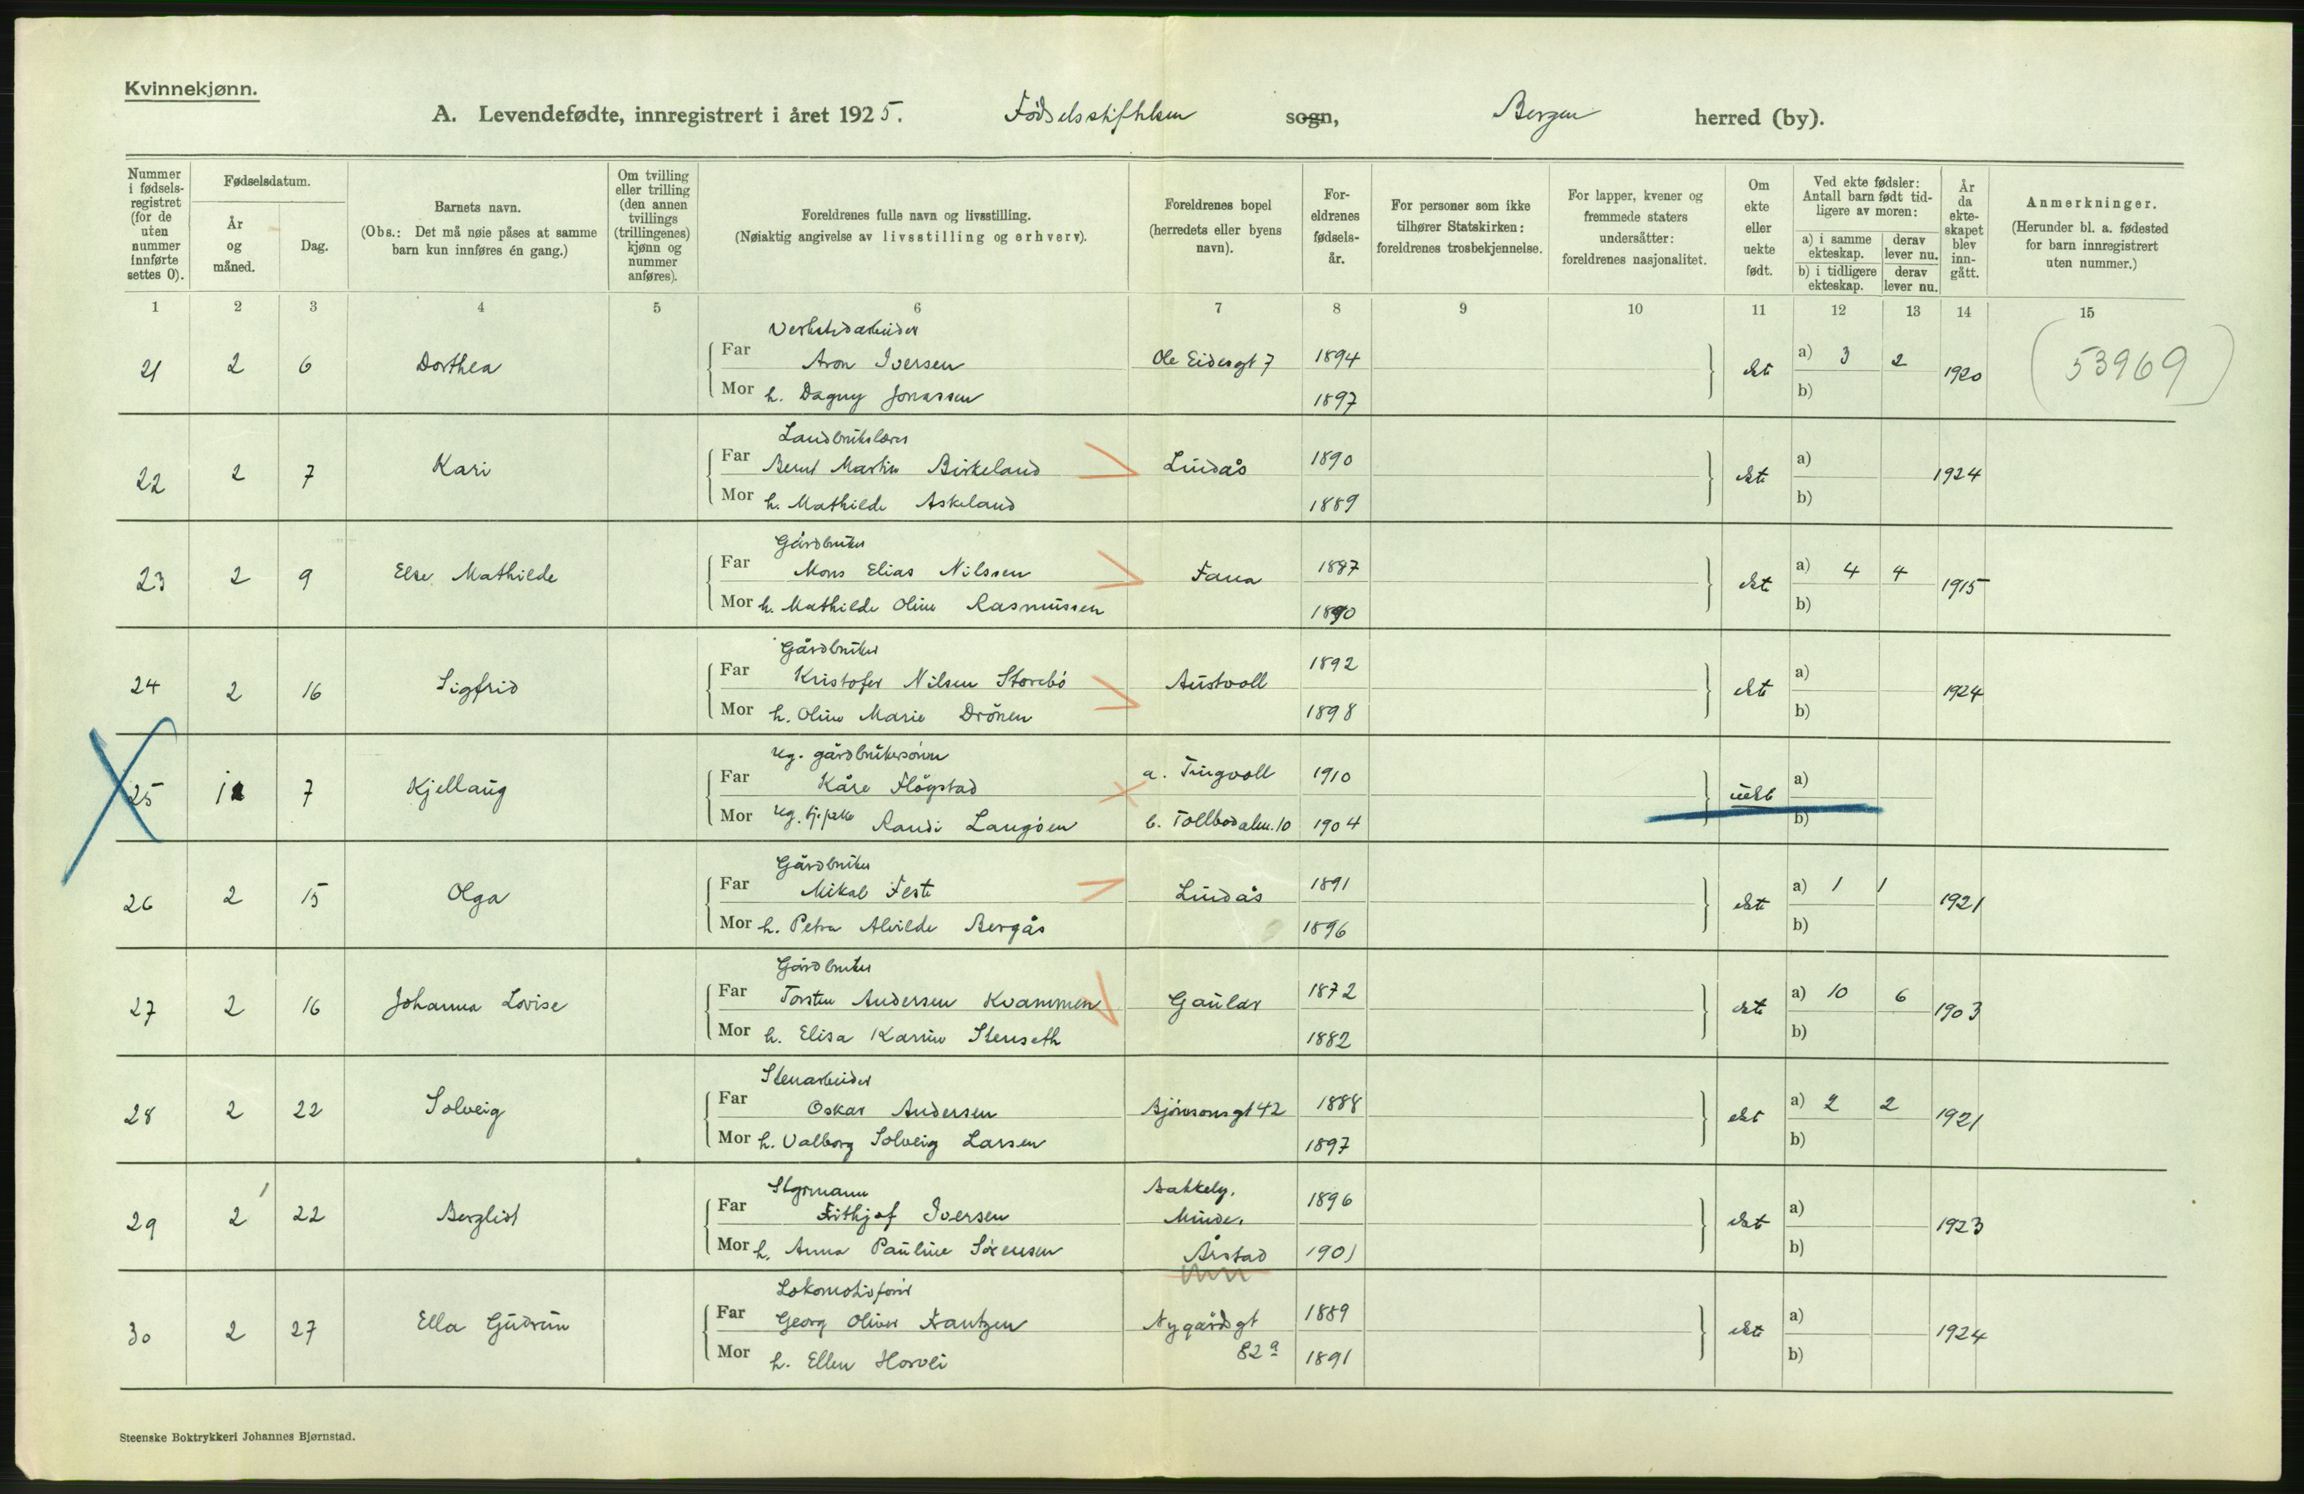 Kvinnekjønn.
A. Levendefødte, innregistrert i året 1925. Fødselsstiftelsen sogn, Bergen herred (by).
Nummer i fødselsregistret (for de uten nummer innførte settes 0).
Fødselsdatum.
År og måned.
Dag.
Barnets navn.
(Obs.: Det må nøie påses at samme barn kun innføres én gang.)
Om tvilling eller trilling (den annen tvillings (trillingenes) kjønn og nummer anføres).
Foreldrenes fulle navn og livsstilling.
(Nøiaktig angivelse av livsstilling og erhverv).
Foreldrenes bopel (herredets eller byens navn).
Foreldrenes fødselsår.
For personer som ikke tilhører Statskirken: foreldrenes trosbekjennelse.
For lapper, kvener og fremmede staters undersåtter: foreldrenes nasjonalitet.
Om ekte eller uekte født.
Ved ekte fødsler: Antall barn født tidligere av moren:
a) i samme ekteskap. derav lever nu.
b) i tidligere ekteskap. derav lever nu.
År da ekteskapet blev inngått.
Anmerkninger.
(Herunder bl. a. fødested for barn innregistrert uten nummer.)
1 2 3 4 5 6 7 8 9 10 11 12 13 14 15
Verkstedarbeider
21 2 6 Dorthea Far Aron Iversen Ole Eidesgt 7 1894 ekte a) 3 2 1920 (53969)
Mor h. Dagny Jonassen 1897 b)
Landbrukslærer
22 2 7 Kari Far Bernt Martin Birkeland Lindås 1890 ekte a) 1924
Mor h. Mathilde Askeland 1889 b)
Gårdbruker
23 2 9 Else Mathilde Far Mons Elias Nilssen Fana 1887 ekte a) 4 4 1915
Mor h. Mathilde Oline Rasmussen 1890 b)
Gårdbruker
24 2 16 Sigfrid Far Kristofer Nilsen Storebö Austvoll 1892 ekte a) 1924
Mor h. Oline Marie Drönen 1898 b)
ug. gårdbrukersönn
25 1 7 Kjellaug Far Kåre Flögstad a. Tingvoll 1910 uekte a)
Mor ug. tj.pike Randi Langöen b. Tollbodalm. 10 1904 b)
Gårdbruker
26 2 15 Olga Far Mikal Feste Lindås 1891 ekte a) 1 1 1921
Mor h. Petra Alvilde Bergås 1896 b)
Gårdbruker
27 2 16 Johanna Lovise Far Torsten Andersen Kvammen Gaular 1872 ekte a) 10 6 1903
Mor h. Elisa Karine Stenseth 1882 b)
Stenarbeider
28 2 22 Solveig Far Oskar Andersen Bjørnsonsgt 42 1888 ekte a) 2 2 1921
Mor h. Valborg Solveig Larsen 1897 b)
Styrmann Bakkely,
29 2 22 Bergliot Far Frithjof Iversen Minde, 1896 ekte a) 1923
Mor h. Anna Pauline Sörensen Årstad 1901 b)
Lokomotivförer
30 2 27 Ella Gudrun Far Georg Oliver Frantzen Nygårdsgt 1889 ekte a) 1924
Mor h. Ellen Horvei 82a 1891 b)
Steenske Boktrykkeri Johannes Bjørnstad.